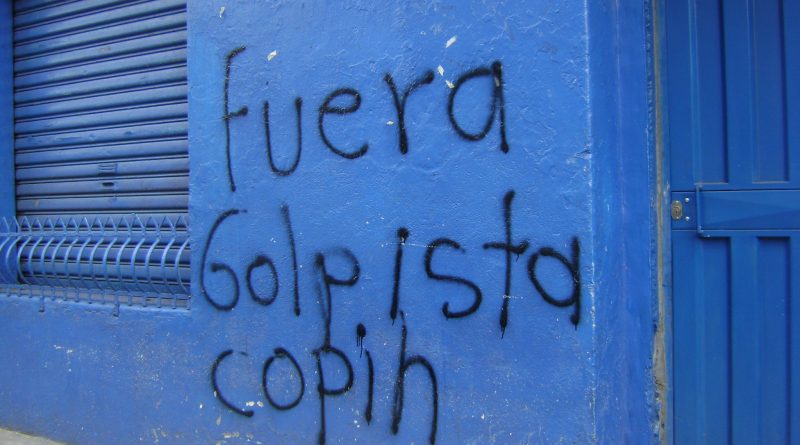 fuera
Golpista
copih